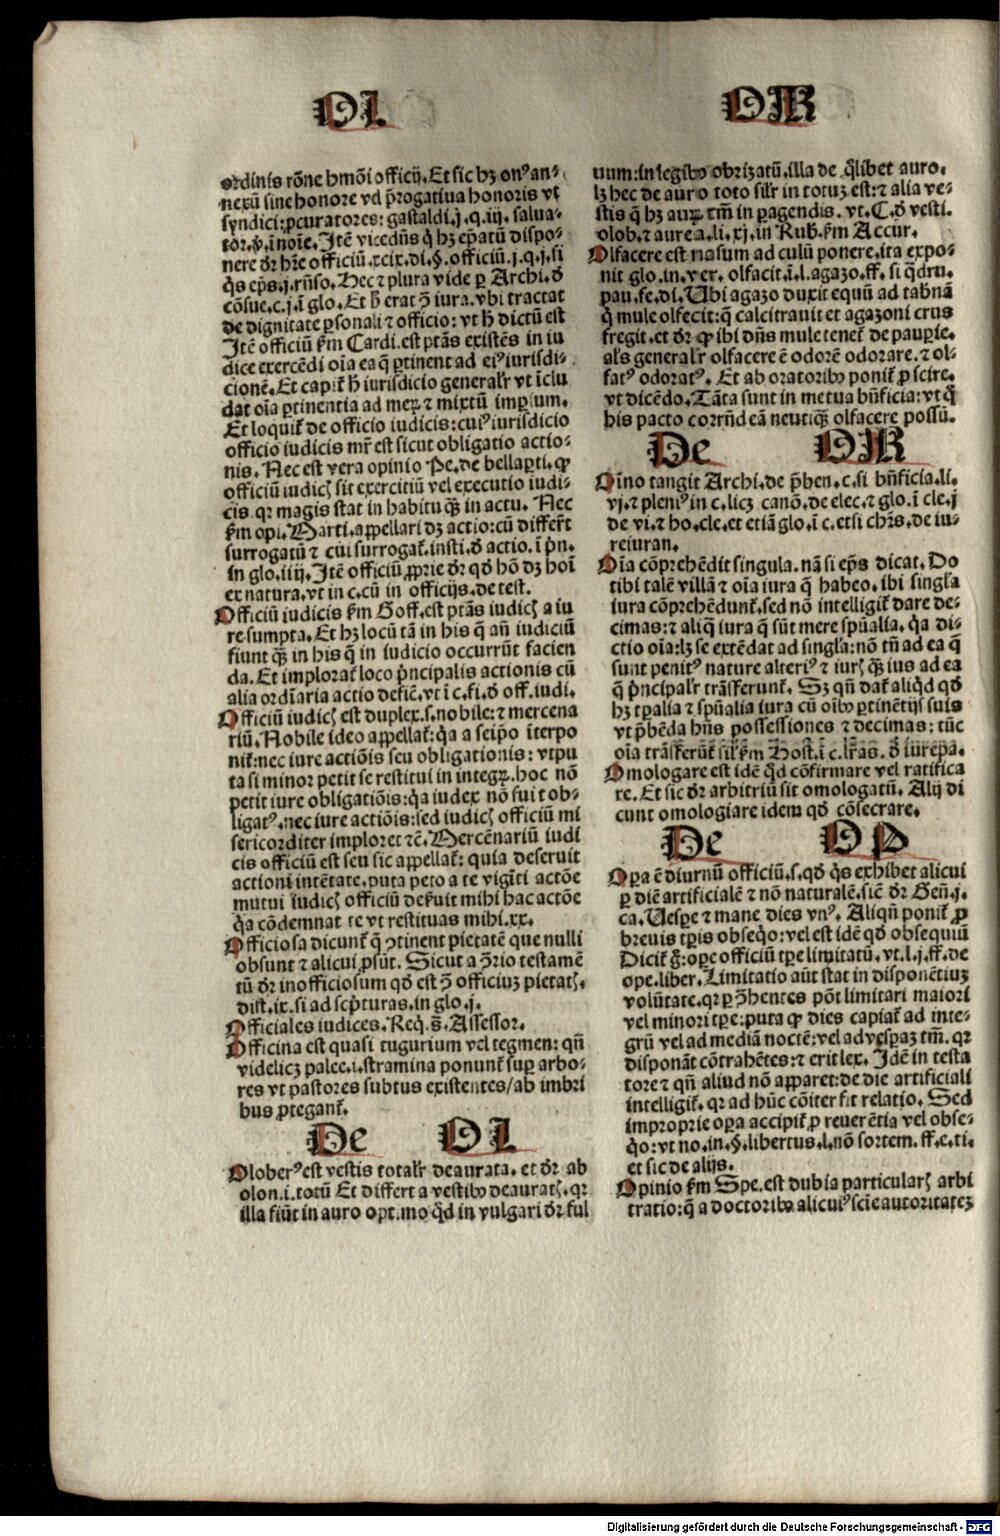 OL
ordinis rõne hmõi officij. Et sic hꝫ onꝰ an-
nexũ sine honore vel p̃rogatiua honoris vt
syndici: ꝓcuratores: gastaldi. j. q. iij. salua-
tor. ꝟ. ĩ noĩe. Itẽ vicedñs q̇ hꝫ ep̃atũ dispo-
nere dr̃ hr̃e officiũ. xcix. di. §. officiũ. j. q. j. si
q̇s ep̃s. j. rñso. Hec ⁊ plura vide ꝑ Archi. ð
cõsue. c. j. ĩ glo. Et ħ erat ꝯ̃ iura. vbi tractat
de dignitate ꝑsonali ⁊ officio: vt ħ dictũ est
Itẽ officiũ ẜm Cardi. est ptãs existẽs in iu
dice exercẽdi oĩa ea q̃ ꝑtinent ad eiꝰ iurisdi-
cionẽ. Et capit̃ ħ iurisdicio generalr̃ vt ĩclu
dat oĩa ꝑtinentia ad meꝝ ⁊ mixtũ imꝑium.
Et loquit̃ de officio iudicis: cuiꝰ iurisdicio
officio iudicis mr̃ est sicut obligatio actio-
nis. Nec est vera opinio Pe. de bellaꝑti. ꝙ
officiũ iudicꝭ sit exercitiũ vel executio iudi-
cis. qꝛ magis stat in habitu qꝫ̃ in actu. Nec
ẜm opi. Barti. appellari dꝫ actio: cũ differt̃
surrogatũ ⁊ cui surrogat̃. insti. ð actio. ĩ p̃n.
in glo. iiij. Itẽ officiũ ꝓprie dr̃ qð hõ dꝫ hoĩ
ex natura. vt in c. cũ in officijs. de test.
Officiũ iudicis ẜm Goff. est ptãs iudicꝭ a iu
re sumpta. Et hꝫ locũ tã in his q̃ añ iudiciũ
fiunt qꝫ̃ in his q̃ in iudicio occurrũt facien
da. Et implorat̃ loco p̃ncipalis actionis cũ
alia ordĩaria actio deficẽ. vt ĩ c. fi. ð off. iudi.
Officiũ iudicꝭ est duplex. s. nobile: ⁊ mercena
riũ. Nobile ideo appellat̃: q̇a a seip̃o ĩterpo
nit̃: nec iure actiõis seu obligationis: vtpu
ta si minor petit se restitui in integꝝ. hoc nõ
petit iure obligatiõis: q̇a iudex nõ fuit ob-
ligatꝰ. nec iure actiõis: sed iudicꝭ officiũ mi
sericorditer imploret ⁊c̃. Mercẽnariũ iudi
cis officiũ est seu sic appellat̃: quia deseruit
actioni intẽtate. puta peto a te vigĩti actõe
mutui iudicꝭ officiũ dekuit mihi hac actõe
q̇a cõdemnat te vt restituas mihi. xx.
Officiosa dicunt̃ q̃ ꝯtinent pietatẽ que nulli
obsunt ⁊ alicui ꝓsũt. Sicut a ꝯ̃rio testamẽ
tũ dr̃ inofficiosum qð est ꝯ̃ officiuꝫ pietatꝭ.
dist. ix. si ad scp̃turas. in glo. j.
Officiales iudices. Req̃. s̃. Assessor.
Officina est quasi tugurium vel tegmen: qñ
videlicꝫ palee. i. stramina ponunt̃ suꝑ arbo-
res vt pastores subtus existentes/ ab imbri
bus ꝓtegant̃.
De OL
Oloberꝰ est vestis totalr̃ deaurata. et dr̃ ab
olon. i. totũ Et differt a vestibꝰ deauratꝭ. qꝛ
illa fiũt in auro optimo qð in vulgari dr̃ ful
OM
uum: in legibꝰ obrizatũ. illa de q̃libet auro.
lꝫ hec de auro toto silr̃ in totuꝫ est: ⁊ alia ve-
stis q̃ hꝫ auꝝ tm̃ in ꝑagendis. vt. C. ð vesti.
olob. ⁊ aurea. li. xj. in Rub. ẜm Accur.
Olfacere est nasum ad culũ ponere. ita expo-
nit glo. in. ver. olfacit. ĩ. l. agazo. ff. si q̇dru.
pau. fe. di. Ubi agazo duxit equũ ad tab̃nã
q̃ mule olfecit: q̃ calcitrauit et agazoni crus
fregit. et dr̃ ꝙ ibi dñs mule tenet̃ de pauꝑie.
als̃ generalr̃ olfacere ẽ odorẽ odorare. ⁊ ol-
fatꝰ odoratꝰ. Et ab oratoribꝰ ponit̃ ꝓ scire.
vt dicẽdo. Tãta sunt in me tua bñficia: vt q̇
his pacto corrñd eã neutiqꝫ̃ olfacere possũ.
De OM
Oĩno tangit Archi. de p̃ben. c. si bñficia. li.
vj. ⁊ pleniꝰ in c. licꝫ canõ. de elec. ⁊ glo. ĩ cle. j
de vi. ⁊ ho. cle. et etiã glo. ĩ c. etsi chr̃s. de iu-
reiuran.
Oĩa cõprehẽdit singula. nã si ep̃s dicat. Do
tibi talẽ villã ⁊ oĩa iura q̃ habeo. ibi singl̃a
iura cõprehẽdunt̃. sed nõ intelligit̃ dare de-
cimas: ⁊ aliq̃ iura q̃ sũt mere spũalia. q̇a di-
ctio oĩa: lꝫ se extẽdat ad singl̃a: nõ tñ ad ea q̃
sunt penitꝰ nature alteriꝰ ⁊ iurꝭ qꝫ̃ ius ad ea
q̃ p̃ncipalr̃ trãsferunt̃. Sꝫ qñ dat̃ aliq̇d qð
hꝫ tꝑalia ⁊ spũalia iura cũ oĩbꝰ ꝑtinẽtijs suis
vt p̃bẽda hñs possessiones ⁊ decimas: tũc
oĩa trãsferũt̃ silr̃ ẜm Host. ĩ c. lr̃as. ð iurepa.
Omologare est idẽ q̇d cõfirmare vel ratifica
re. Et sic dr̃ arbitriũ sit omologatũ. Alij di
cunt omologiare idem qð cõsecrare.
De OP
Oꝑa ẽ diurnũ officiũ. s. qð q̇s exhibet alicui
ꝑ diẽ artificialẽ ⁊ nõ naturalẽ. siẽ dr̃ Geñ. j.
ca. Uesꝑe ⁊ mane dies vnꝰ. Aliqñ ponit̃ ꝓ
breuis tꝑis obseq̇o: vel est idẽ qð obsequiũ
Dicit̃ g̃: oꝑe officiũ tꝑe limitatũ. vt. l. j. ff. de
ope. liber. Limitatio aũt stat in disponẽtiuꝫ
volũtate. qꝛ ꝑ ꝯ̃hentes põt limitari maiori
vel minori tꝑe: puta ꝙ dies capiat̃ ad inte-
grũ vel ad mediã noctẽ: vel ad vesꝑaꝫ tm̃. qꝛ
disponãt cõtrahẽtes: ⁊ erit lex. Idẽ in testa
tore ⁊ qñ aliud nõ apparet: de die artificiali
intelligit̃. qꝛ ad hũc cõiter fit relatio. Sed
improprie oꝑa accipit̃ ꝓ reuerẽtia vel obse-
q̇o: vt no. in. §. libertus. l. nõ sortem. ff. e. ti.
et sic de alijs.
Opinio ẜm Spe. est dubia particularꝭ arbi
tratio: q̃ a doctoribꝰ alicuiꝰ sciẽ autoritateꝫ
Digitalisierung gefördert durch die Deutsche Forschungsgemeinschaft - DFG